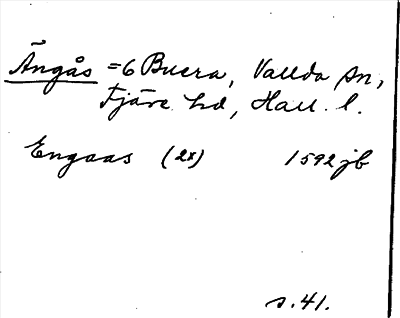 Ängås = 6 Buera, Vallda sn,
Fjäre hd, Hall. l.
Engaas (2x) 1592 jb
s. 41.